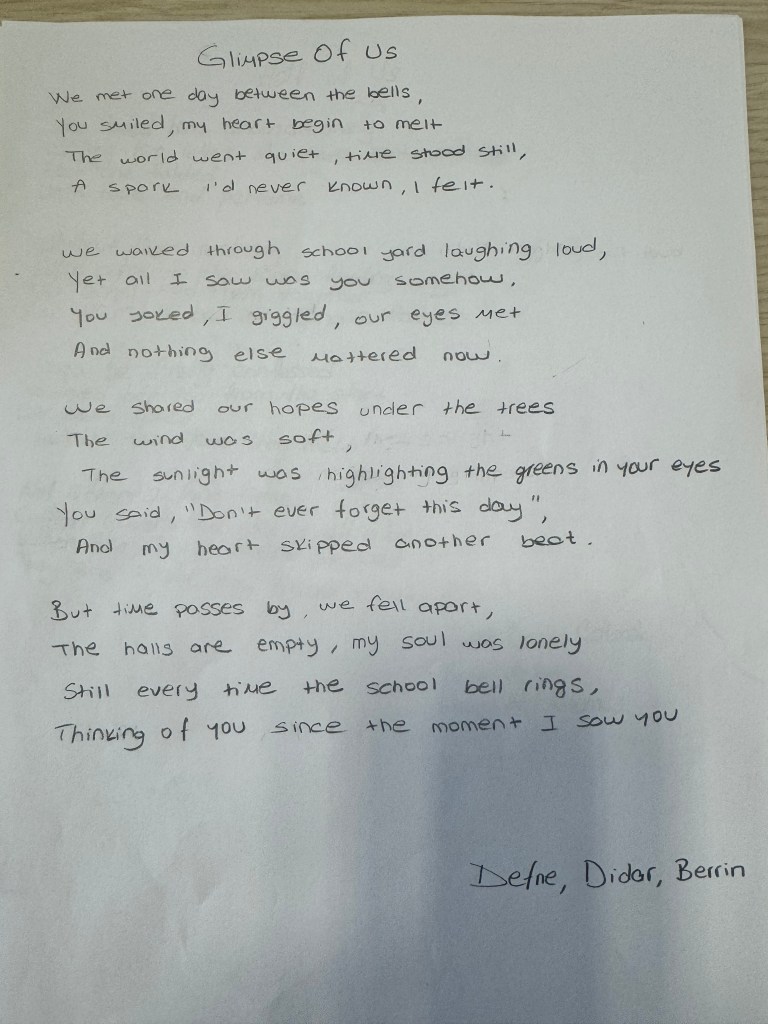 Glimpse Of Us
We met one day between the bells,
You smiled, my heart begin to melt
The world went quiet, time stood still,
A spark I'd never known, I felt.
We walked through school yard laughing loud,
Yet all I saw was you somehow,
You joked, I giggled, our eyes met
And nothing else mattered now.
We shared our hopes under the trees
The wind was soft,
The sunlight was highlighting the greens in your eyes
You said, "Don't ever forget this day",
And my heart skipped another beat.
But time passes by, we fell apart,
The halls are empty, my soul was lonely
Still every time the school bell rings,
Thinking of you since the moment I saw you
Defne, Didar, Berrin